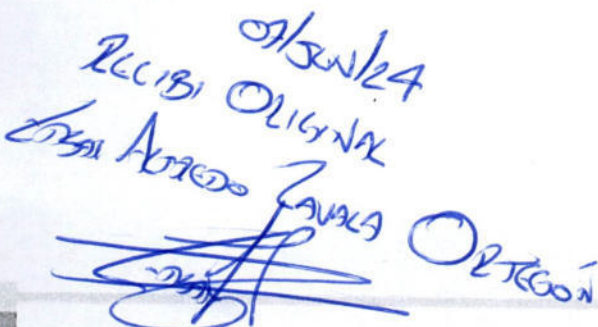 07/JUN/24
RECIBI ORIGINAL
ALFREDO ZAVALA ORTEGÓN